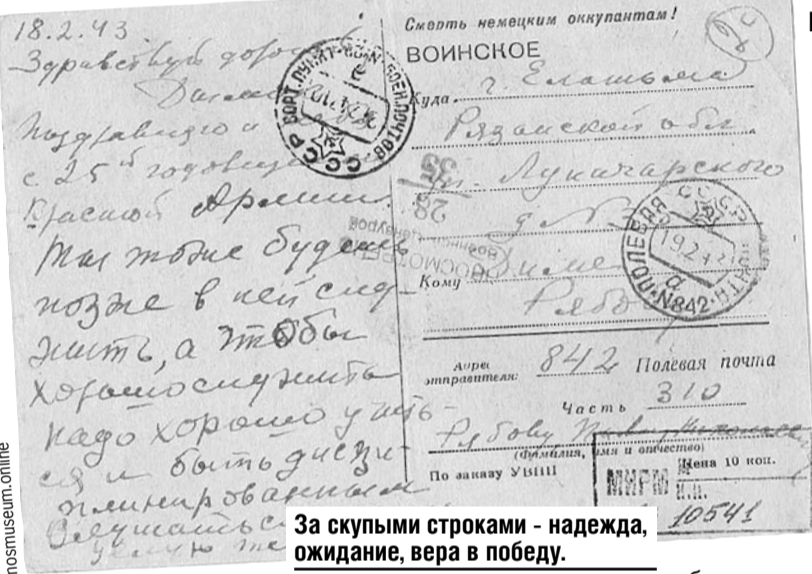 18.2.43.
Здравствуй дорогой
Поздравляю
с 25й годовщиной
Красной Армии.
Ты тоже будешь
позже в ней слу-
жить, а чтобы
хорошо служить
надо хорошо учить-
ся и быть дисци-
плинированным
Слушаться
целую
Смерть немецким оккупантам!
ВОИНСКОЕ
Куда г. Елатьма
Рязанской обл
ул. Луначарского
д №
Кому Диме
Рябо
Адрес отправителя: 842 Полевая почта
Часть 310
Рябову
(Фамилия, имя и отчество)
По заказу УВПП
Цена 10 коп.
МИРМ
и.п.
10541
СССР СОРТ. ПУНКТ
ПОЛЕВАЯ ПОЧТА №842
СССР
19.2.43
28
35
ПРОСМОТРЕНО
Военной Цензурой
За скупыми строками - надежда,
ожидание, вера в победу.
mosmuseum.online